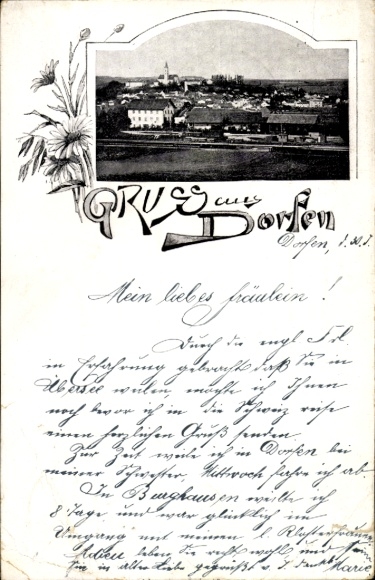 Gruss aus
Dorfen
Dorfen, d. 30. 7.
Mein liebes Fräulein!
Durch die engl. Frl.
in Erfahrung gebracht daß Sie in
Übersee weilen, möchte ich Ihnen
noch bevor ich in die Schweiz reise
einen herzlichen Gruß senden.
Zur Zeit weile ich in Dorfen bei
meiner Schwester. Mittwoch fahre ich ab.
In Burghausen weilte ich
8 Tage und war glücklich im
Umgang mit meinen l. Klosterfrauen
leben Sie recht wohl und
Sie in alter Liebe gegrüßt v. I. dankb.
Marie